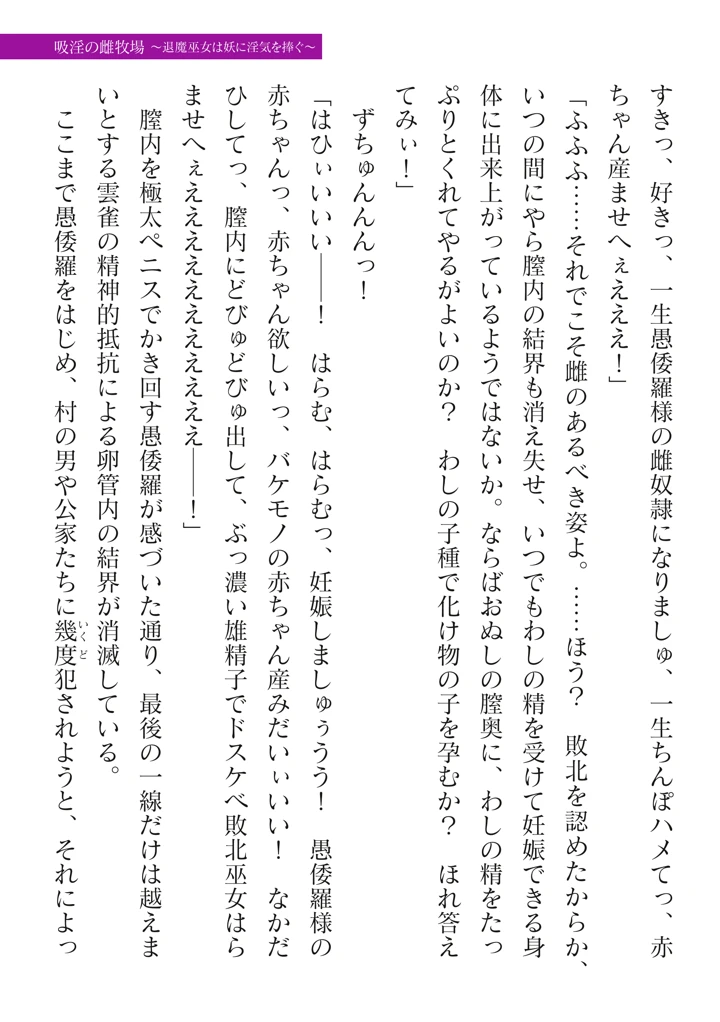 吸淫の雌牧場 ～退魔巫女は妖に淫気を捧ぐ～
すきっ、好きっ、一生愚倭羅様の雌奴隷になりましゅ、一生ちんぽハメてっ、赤
ちゃん産ませへぇえええ！」
「ふふふ……それでこそ雌のあるべき姿よ。……ほう？　敗北を認めたからか、
いつの間にやら膣内の結界も消え失せ、いつでもわしの精を受けて妊娠できる身
体に出来上がっているようではないか。ならばおぬしの膣奥に、わしの精をたっ
ぷりとくれてやるがよいのか？　わしの子種で化け物の子を孕むか？　ほれ答え
てみぃ！」
ずちゅんんんっ！
「はひぃいいい――！　はらむ、はらむっ、妊娠しましゅぅうう！　愚倭羅様の
赤ちゃんっ、赤ちゃん欲しいっ、バケモノの赤ちゃん産みだいぃいい！　なかだ
ひしてっ、膣内にどびゅどびゅ出して、ぶっ濃い雄精子でドスケベ敗北巫女はら
ませへぇええええええええええええ――！」
膣内を極太ペニスでかき回す愚倭羅が感づいた通り、最後の一線だけは越えま
いとする雲雀の精神的抵抗による卵管内の結界が消滅している。
ここまで愚倭羅をはじめ、村の男や公家たちに幾度犯されようと、それによっ